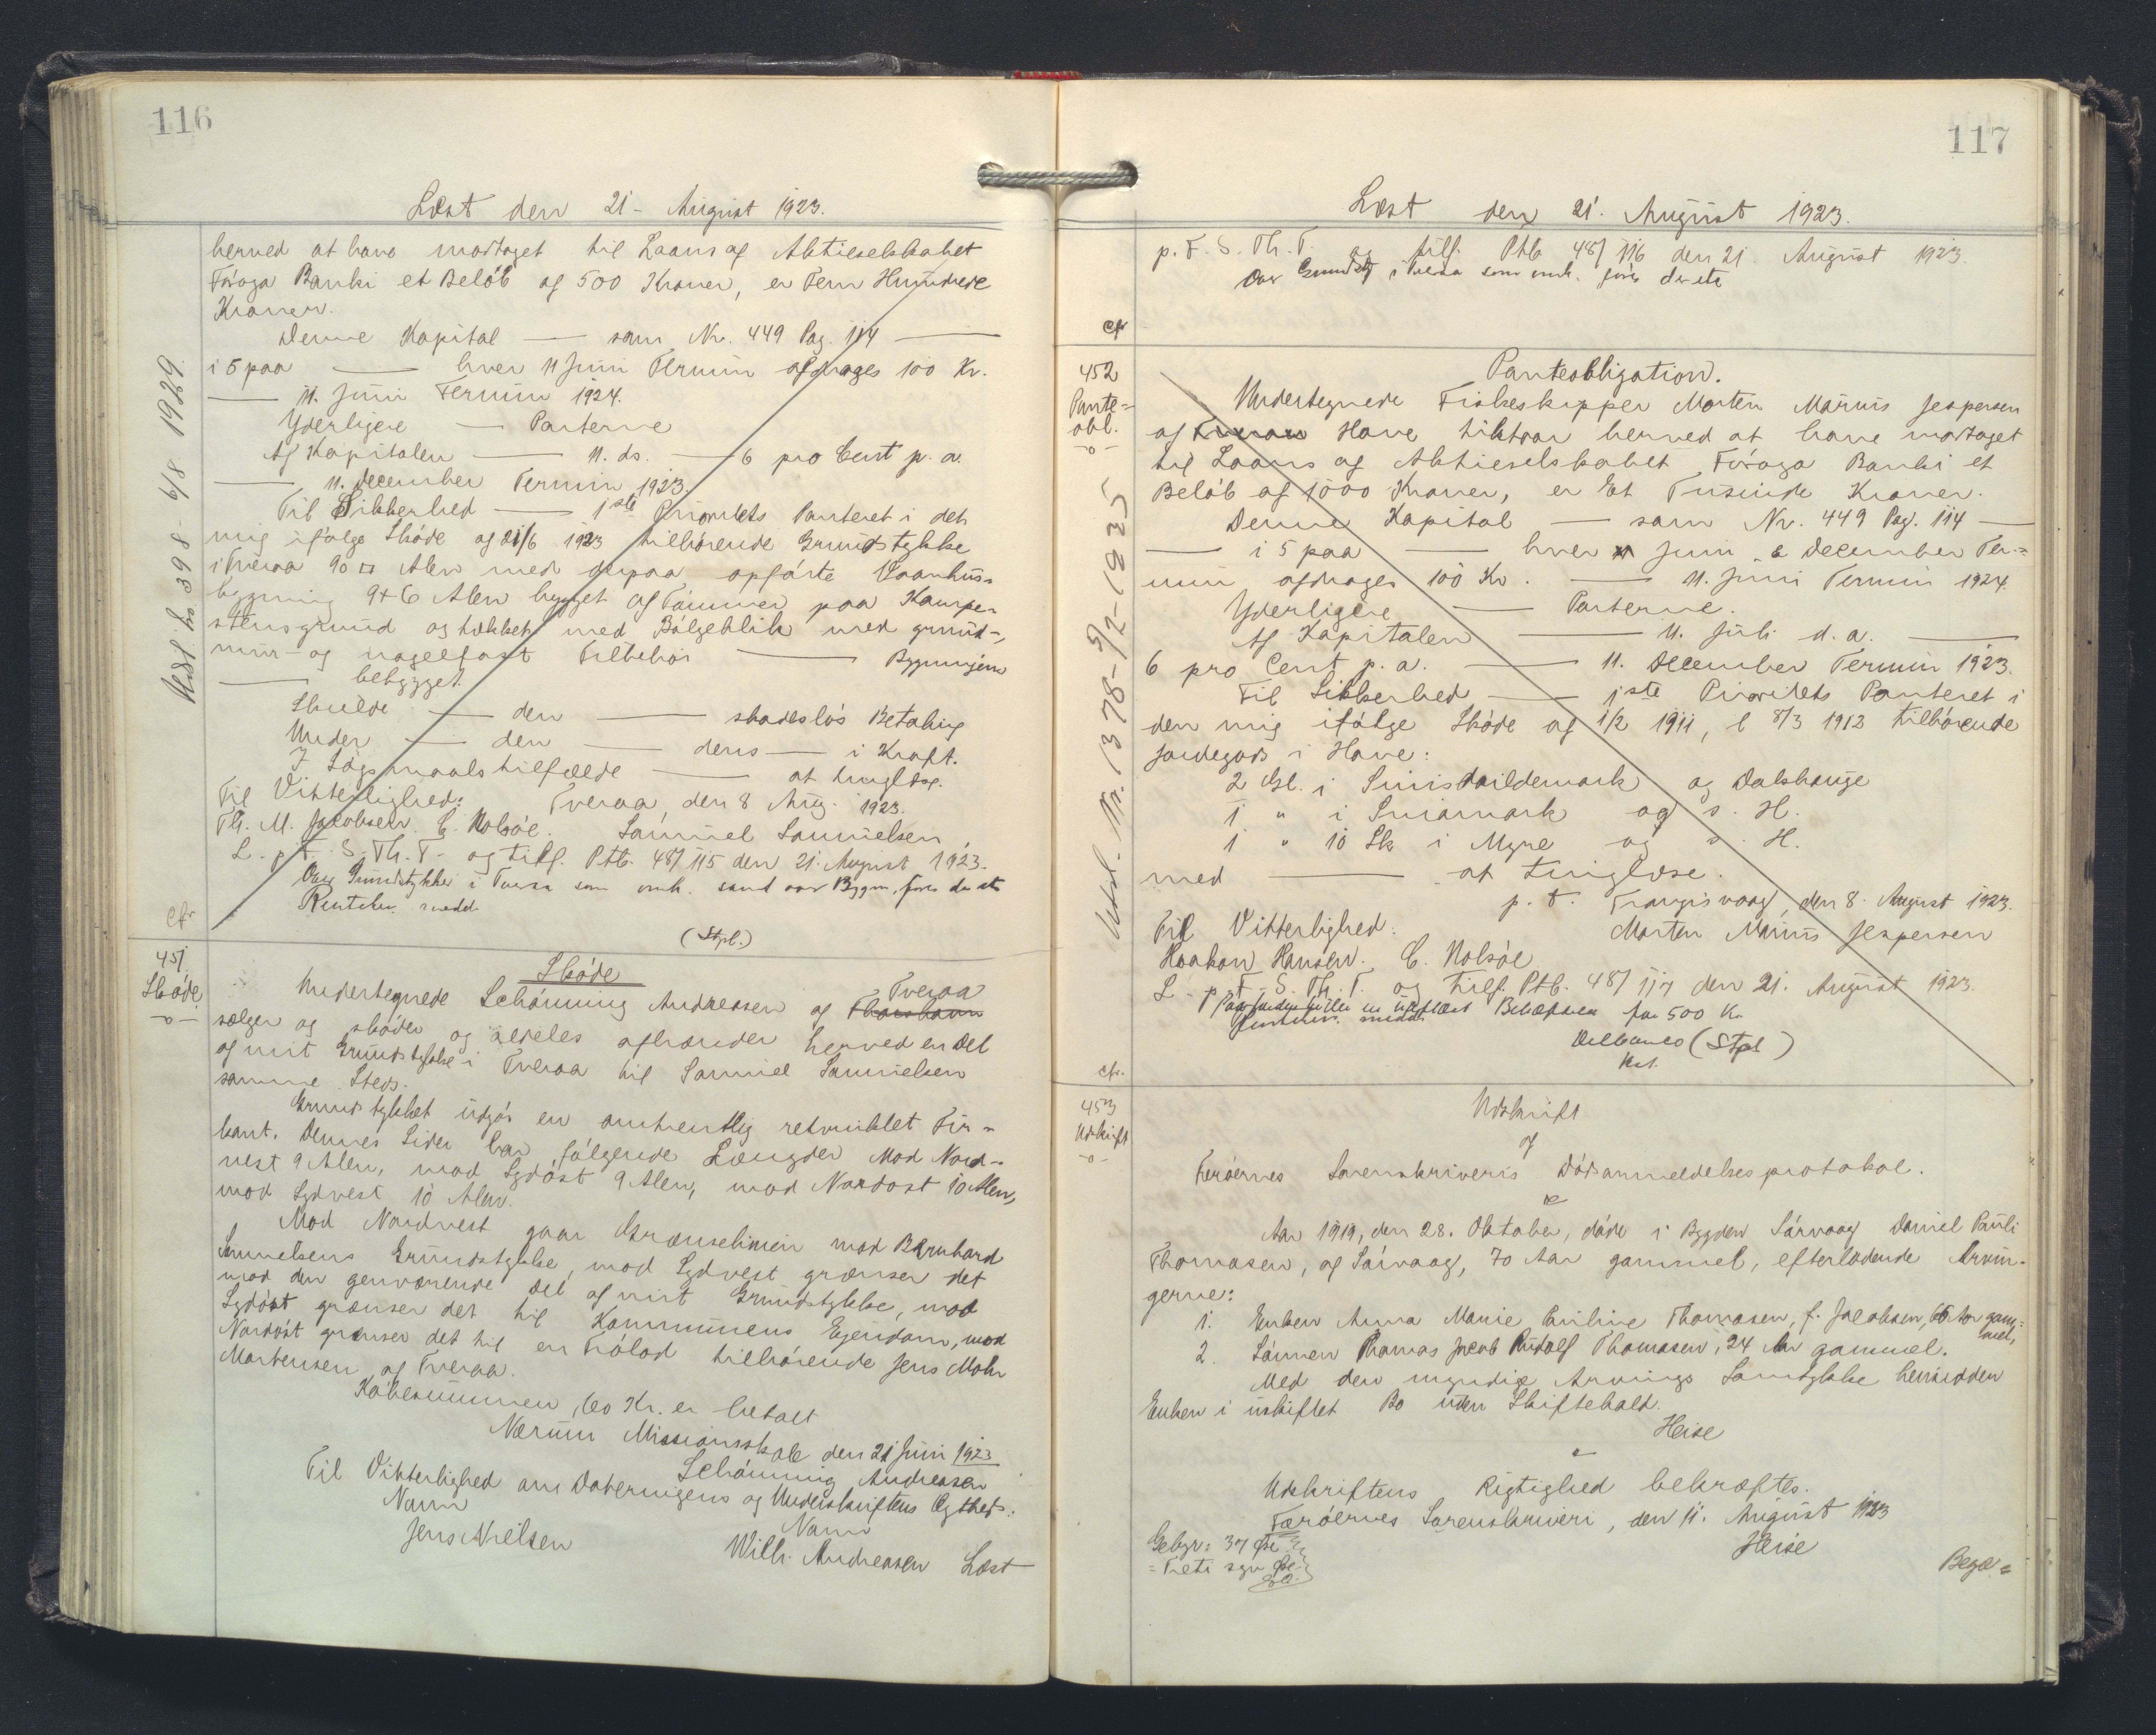 116
Læst den 21 - August 1923.
herved at have modtaget til Laans af Aktieselskabet
Föroya Banki et Beløb af 500 Kroner, er Fem Hundrede
Kroner.
Denne Kapital — som Nr. 449 Pag. 114 —
i 5 paa — hver 11 Juni Termin afdrages 100 Kr.
— 11. Juni Termin 1924.
Yderligere — Parterne
Af Kapitalen — 11. ds. — 6 pro Cent p. a.
— 11. December Termin 1923.
Til Sikkerhed — 1ste Prioritets Panteret i det
mig ifølge Skøde af 21/6 1923 tilhørende Grundstykke
i Tveraa 90 □ Alen med derpaa opførte Vaanhus-
bygning 9+6 Alen bygget af Tømmer paa Kampe-
stensgrund og tækket med Bølgeblik med grund-,
mur- og nagelfast Tilbehør — Bygningen
— bebygget.
Skulde — den — skadesløs Betaling
Under — den — dens — i Kraft.
I Søgsmaalstilfælde — at tinglæse.
Til Vitterlighed: Tveraa, den 8 Aug. 1923.
Th. M. Jacobsen. C. Holsøe. Samuel Samuelsen
L. p. F. S. Th. T. og tilf. Ptb. 48/115 den 21. August 1923.
Over Grundstykke i Tveraa som omh. samt over Bygn. føres der ete
Cfr
(Stpl.)
Udsl. No 398 - 6/8 1929
451
Skøde
-o-
Skøde
Undertegnede Schönning Andreasen af Thorshavn Tveraa
sælger og skøder og aldeles afhænder herved en Del
af mit Grundstykke i Tveraa til Samuel Samuelsen
samme Steds.
Grundstykket udgør en omtrentlig retvinklet Fir-
kant. Dennes Sider har følgende Længder Mod Nord-
vest 9 Alen, mod Sydøst 9 Alen, mod Nordøst 10 Alen,
mod Sydvest 10 Alen.
Mod Nordvest gaar Grænselinien mod Bernhard
Samuelsens Grundstykke, mod Sydvest grænser det
mod den genværende Del af mit Grundstykke, mod
Sydøst grænser det til Kommunens Ejendom, mod
Nordøst grænser det til en Trølad tilhørende Jens Mohr
Mortensen af Tveraa.
Købesummen, 60 Kr. er betalt
Nærum Missionsskole den 21 Juni 1923
Schönning Andreasen
Til Vitterlighed om Dateringens og Underskriftens Ægthed:
Navn
Jens Nielsen
Navn
Willi. Andreasen Læst
117
Læst den 21. August 1923.
p. F. S. Th. T. og tilf. Ptb 48/116 den 21. August 1923.
Over Grundst i Tveraa som omh. føres der ete
Cfr
452
Pante-
obl.
-o-
Udsl. Nr. 1378 - 9/2 - 1935
Panteobligation.
Undertegnede Fiskeskipper Morten Marius Jespersen
af Tveraa Hove tilstaar herved at have modtaget
til Laans af Aktieselskabet Föroya Banki et
Beløb af 1000 Kroner, er Et Tusinde Kroner.
Denne Kapital — som Nr. 449 Pag. 114 —
— i 5 paa — hver 11 Juni & December Ter-
min afdrages 100 Kr. — 11. Juni Termin 1924.
Yderligere — Parterne.
Af Kapitalen — 11. Juli d. a. —
6 pro Cent p. a. — 11. December Termin 1923.
Til Sikkerhed — 1ste Prioritets Panteret i
den mig ifølge Skøde af 1/2 1911, & 8/3 1912 tilhørende
Jordegods i Hove:
2 Gl. i Sunis Daildemark og Dalshauge
1 " i Smiamark og s. H.
1 " 10 Sk i Myre og s. H.
med — at tinglæse.
p. t. Trangisvaag, den 8. August 1923.
Til Vitterlighed. Morten Marius Jespersen
Haakon Hansen. C. Holsøe
L. p. F. S. Th. T. og Tilf. Ptb. 48/117 den 21. August 1923.
Behæftelsen for 500 Kr.
Delbanco (Stpl)
Kst.
Cfr.
453
Udskrift
-o-
Udskrift
af
Færøernes Sorenskriveris Dødsanmeldelsesprotokol.
Aar 1919, den 28. Oktober, døde i Bygden Sørvaag Daniel Pauli
Thomasen, af Sørvaag, 70 Aar gammel, efterladende Arvin-
gerne:
1. Enken Anna Marie Emiline Thomasen, f. Jacobsen, 66 Aar gam-
mel,
2. Sønnen Thomas Jacob Rudolf Thomasen, 24 Aar gammel.
Med den myndige Arvings Samtykke hensidder
Enken i uskiftet Bo uden Skiftehold.
Heise
Udskriftens Rigtighed bekræftes.
Færøernes Sorenskriveri, den 11. August 1923
Heise
Gebyr: 37 Øre
= Treti syv Øre
Begæ-